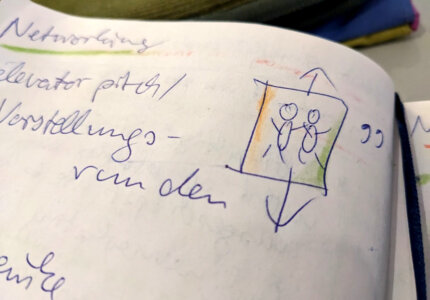 Networking
elevator pitch/
Vorstellungs-
runden